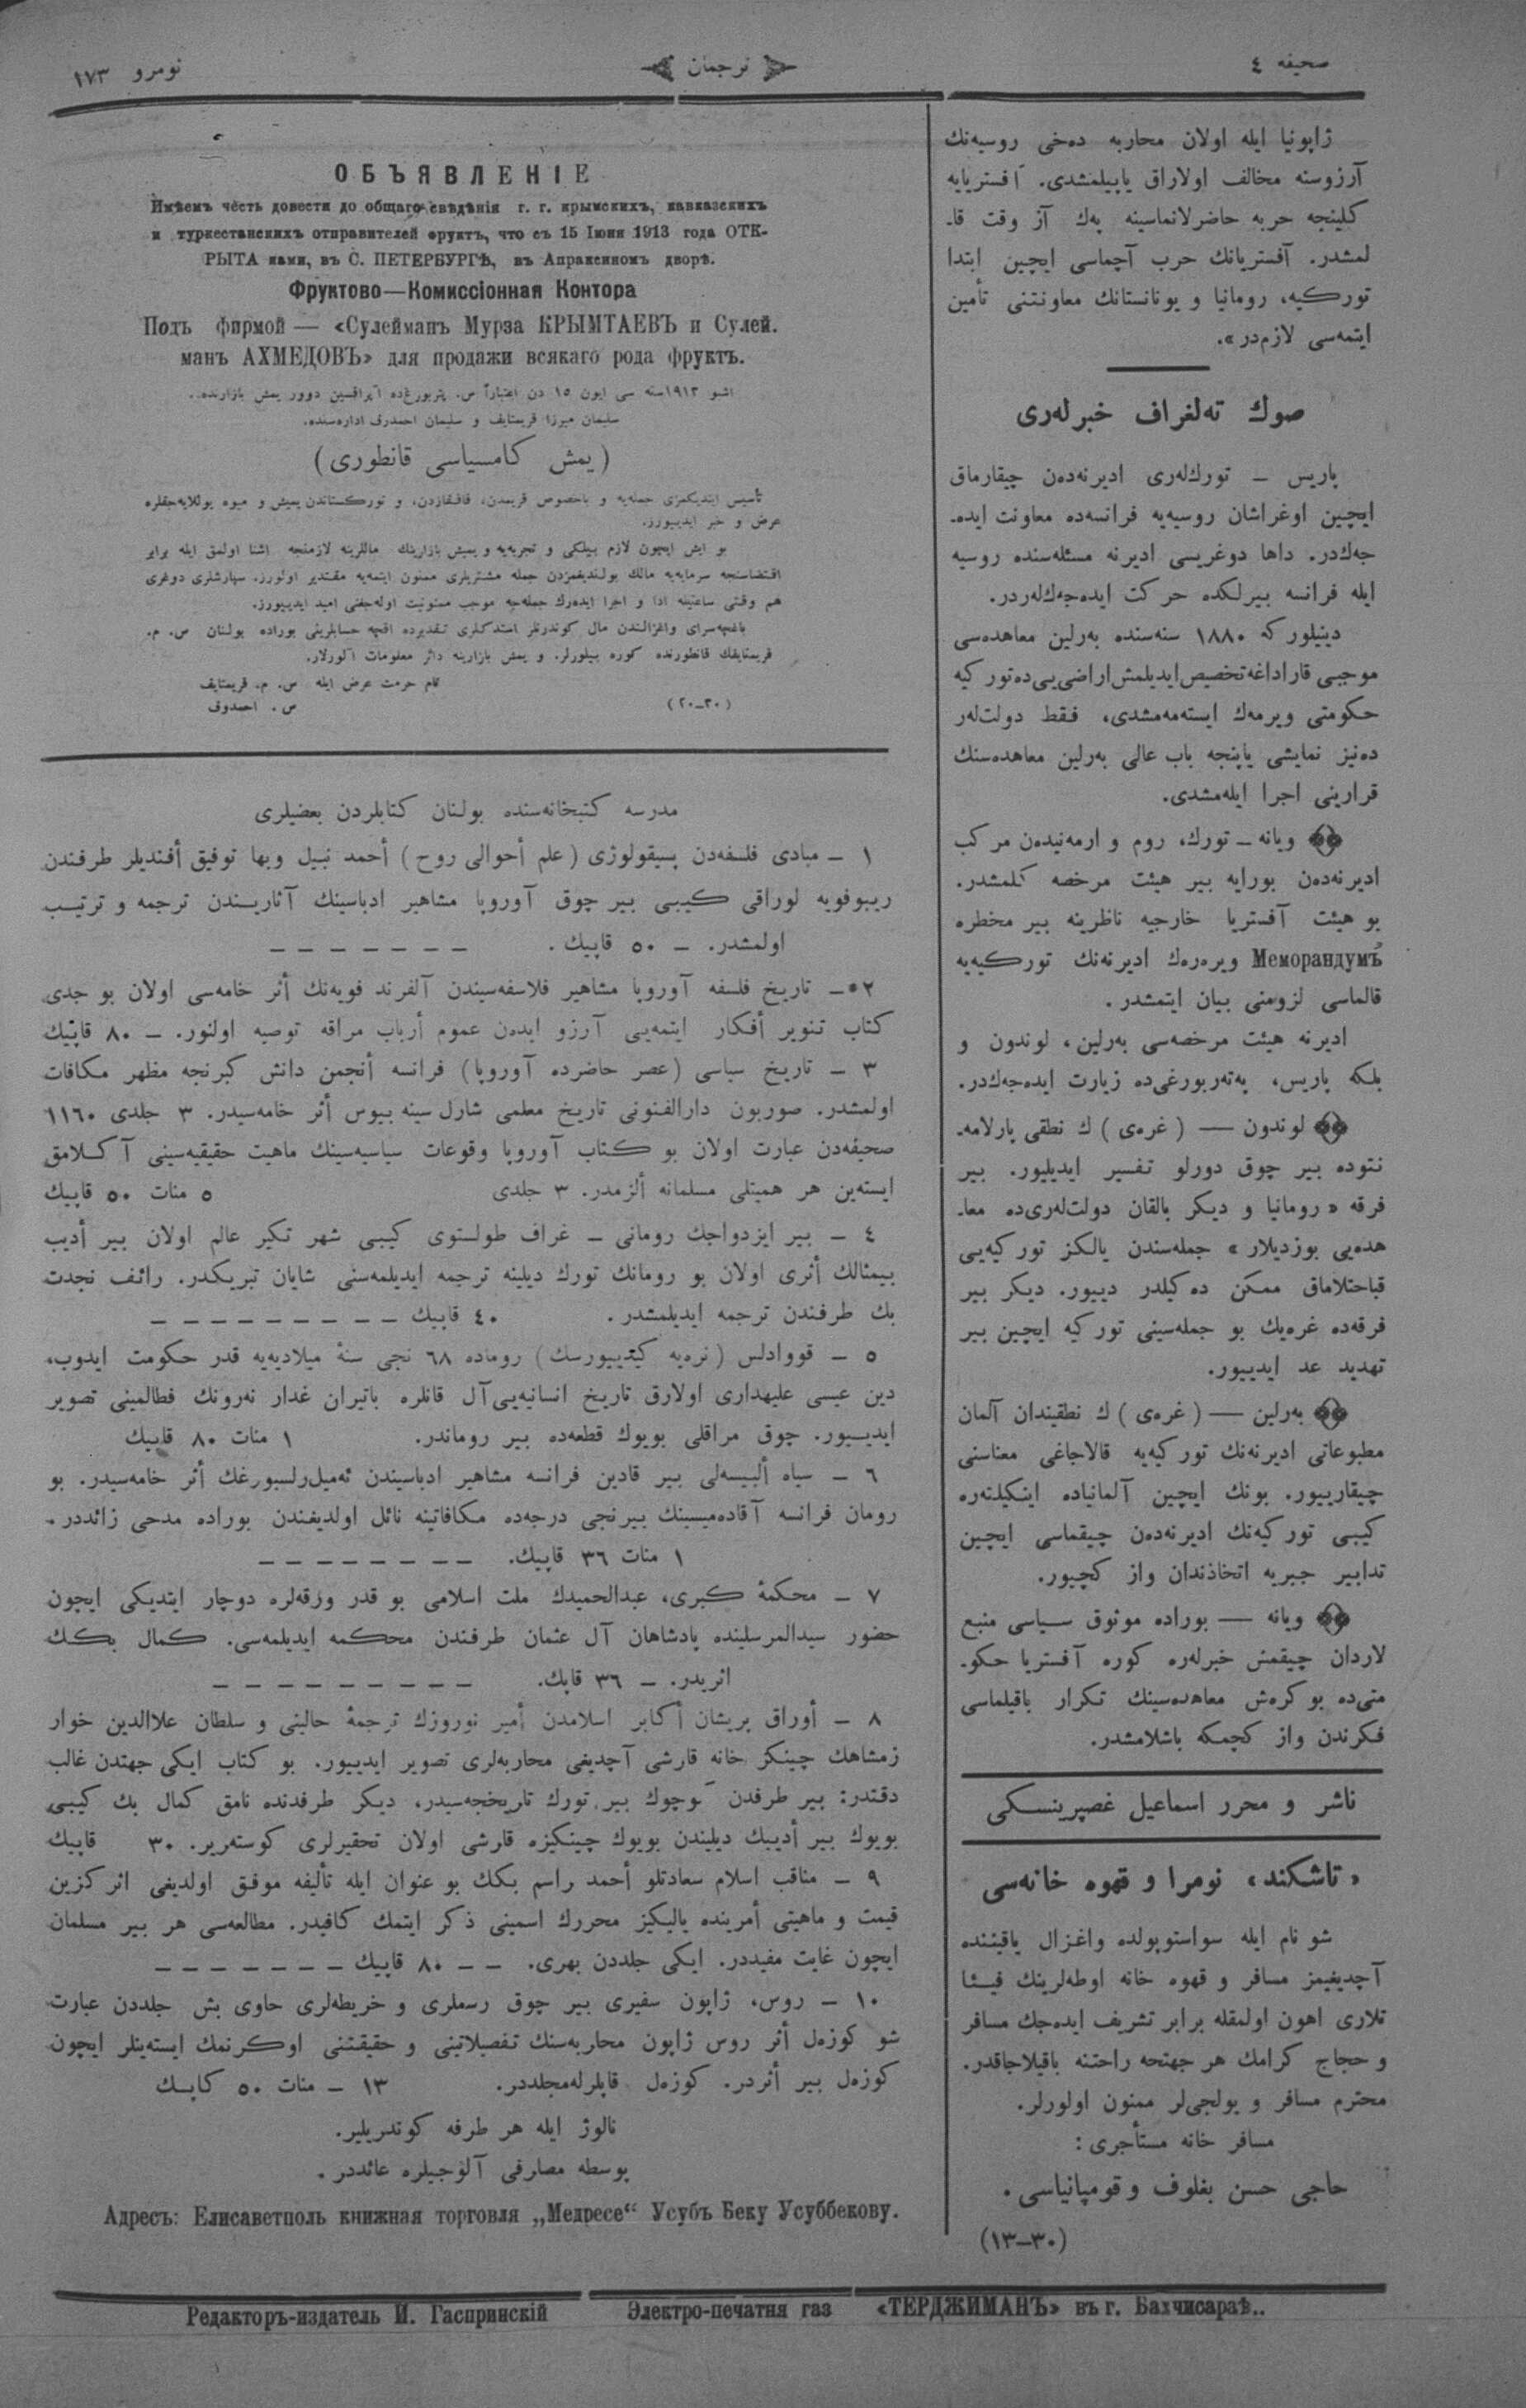 صحیفه ٤
ترجمان
نومرو ١٧٣
ژاپونیا ایله اولان محاربه ده‌خی روسیه‌نك
آرزوسنه مخالف اولاراق یاپیلمشدی. آفستریایه
كلینجه حربه حاضرلانماسینه پەك آز وقت قا-
لمشدر. آفستریانك حرب آچماسی ایچین ابتدا
توركیه، رومانیا و یونانستانك معاونتنی تأمین
ایتمه‌سی لازم‌در».
صوك ته‌لغراف خبرله‌ری
پاریس – تورك‌له‌ری ادیرنه‌دەن چیقارماق
ایچین اوغراشان روسیه‌یه فرانسه‌ده معاونت ایده-
جەك‌در. داها دوغریسی ادیرنه مسئله‌سنده روسیه
ایله فرانسه بیرلكده حركت ایده‌جەك‌له‌ردر.
دینیلور كه ١٨٨٠ سنه‌سنده بەرلین معاهده‌سی
موجبی قاراداغه تخصیص ایدیلمش اراضی‌یی ده توركیه
حكومتی ویرمه‌ك ایسته‌مه‌مشدی، فقط دولت‌له‌ر
دەنیز نمایشی یاپنجه باب عالی بەرلین معاهده‌سنك
قرارینی اجرا ایله‌مشدی.
ویانه – تورك، روم و ارمه‌نیدەن مركب
ادیرنه‌دەن بورایه بیر هیئت مرخصه كلمشدر.
بو هیئت آفستریا خارجیه ناظرینه بیر مخطره
Меморандумъ ویره‌رەك ادیرنه‌نك توركیه‌یه
قالماسی لزومنی بیان ایتمشدر.
ادیرنه هیئت مرخصه‌سی بەرلین، لوندون و
بلكه پاریس، پەتەربورغی‌ده زیارت ایده‌جەك‌در.
لوندون — (غره‌ی) ك نطقی پارلامه-
نتوده بیر چوق دورلو تفسیر ایدیلیور. بیر
فرقه «رومانیا و دیكر بالقان دولت‌له‌ری‌ده معا-
هده‌یی بوزدیلار» جمله‌سندن یالكز توركیه‌یی
قباحتلاماق ممكن دەكیلدر دییور. دیكر بیر
فرقه‌ده غره‌یك بو جمله‌سینی توركیه ایچین بیر
تهدید عد ایدییور.
بەرلین — (غره‌ی) ك نطقیندان آلمان
مطبوعاتی ادیرنه‌نك توركیه‌یه قالاجاغی معناسنی
چیقارییور. بونك ایچین آلمانیاده اینكیلتەره
كیبی توركیه‌نك ادیرنه‌دەن چیقماسی ایچین
تدابیر جبریه اتخاذندان واز كچیور.
ویانه — بوراده موثوق سیاسی منبع
لاردان چیقمش خبرله‌ره كوره آفستریا حكو-
متی‌ده بوكره‌ش معاهده‌سینك تكرار باقیلماسی
فكرندن واز كچمكه باشلامشدر.
ناشر و محرر اسماعیل غصپرینسكی
«تاشكند» نومرا و قهوه خانه‌سی
شو نام ایله سواستوپولده واغزال یاقیننده
آچدیغیمز مسافر و قهوه خانه اوطه‌لرینك فیئا
تلاری اهون اولمقله برابر تشریف ایده‌جك مسافر
و حجاج كرامك هر جهتجه راحتنه باقیلاجاقدر.
محترم مسافر و یولجی‌لر ممنون اولورلر.
مسافر خانه مستأجری:
حاجی حسن بغلوف و قومپانیاسی.
(١٣–٣٠)
ОБЪЯВЛЕНІЕ
Имѣемъ честь довести до общаго свѣдѣнія г. г. крымскихъ, кавказскихъ
и туркестанскихъ отправителей фруктъ, что съ 15 Іюня 1913 года ОТК-
РЫТА нами, въ С. ПЕТЕРБУРГѢ, въ Апраксиномъ дворѣ.
Фруктово—Комиссіонная Контора
Подъ фирмой — «Сулейманъ Мурза КРЫМТАЕВЪ и Сулей.
манъ АХМЕДОВЪ» для продажи всякаго рода фруктъ.
اشبو ١٩١٣ سنه سی ایون ١٥ دن اعتباراً س. پتربورغ‌ده آپراقسین دوور یمش بازارنده.
سلیمان میرزا قریمتایف و سلیمان احمدوف اداره‌سنده.
(یمش كامسیاسی قانطوری)
تأسیس ایتدیكمزی جمله‌یه و باخصوص قریمدن، قافقازدن، و توركستاندن یمیش و میوه یوللایه‌جقلره
عرض و خبر ایدییورز.
بو ایش ایچون لازم بیلكی و تجربه‌یه و یمیش بازارینك ماللرینه لازمنجه اشنا اولمق ایله برابر
اقتضاسنجه سرمایه‌یه مالك بولندیغمزدن جمله مشتریلری ممنون ایتمه‌یه مقتدیر اولورز. سپارشلری دوغری
هم وقتی ساعتینه ادا و اجرا ایده‌رك جمله‌جه موجب ممنونیت اوله‌جغنی امید ایدییورز.
باغچه‌سرای واغزالندن مال كوندرنلر استدكلری تقدیرده اقچه حسابلرینی بوراده بولنان س. م.
قریمتایفك قانطورنده كوره بیلورلر. و یمش بازارینه دائر معلومات آلورلار.
تمام حرمت عرض ایله س. م. قریمتایف
س. احمدوف
(٢٠–٣٠)
مدرسه كتبخانه‌سنده بولنان كتابلردن بعضیلری
١ – مبادی فلسفه‌دن پسیقولوژی (علم أحوالی روح) أحمد نبیل وبها توفیق أفندیلر طرفندن
ریبوفویه لوراقی كیبی بیر چوق آوروپا مشاهیر ادباسینك آثاریندن ترجمه و ترتیب
اولمشدر. – ٥٠ قاپیك.
٢ – تاریخ فلسفه آوروپا مشاهیر فلاسفه‌سیندن آلفرند فویه‌نك أثر خامه‌سی اولان بو جدی
كتاب تنویر أفكار ایتمه‌یی آرزو ایدەن عموم أرباب مراقه توصیه اولنور. – ٨٠ قاپیك
٣ – تاریخ سیاسی (عصر حاضرده آوروپا) فرانسه أنجمن دانش كبرنجه مظهر مكافات
اولمشدر. صوربون دارالفنونی تاریخ معلمی شارل سینه بیوس أثر خامه‌سیدر. ٣ جلدی ١١٦٠
صحیفه‌دن عبارت اولان بو كتاب آوروپا وقوعات سیاسیه‌سینك ماهیت حقیقیه‌سینی آكلامق
ایسته‌ین هر همیتلی مسلمانه ألزمدر. ٣ جلدی ٥ منات ٥٠ قاپیك
٤ – بیر ایزدواجك رومانی – غراف طولستوی كیبی شهر تكیر عالم اولان بیر أدیب
بیمثالك أثری اولان بو رومانك تورك دیلینه ترجمه ایدیلمه‌سنی شایان تبریكدر. رائف نجدت
بك طرفندن ترجمه ایدیلمشدر. ٤٠ قاپیك
٥ – قووادلس (نره‌یه كیدییورسك) روماده ٦٨ نجی سنهٔ میلادیه‌یه قدر حكومت ایدوب،
دین عیسی علیهداری اولارق تاریخ انسانیه‌یی آل قانلره باتیران غدار نه‌رونك فطالمینی تصویر
ایدییور. چوق مراقلی بویوك قطعه‌ده بیر روماندر. ١ منات ٨٠ قاپیك
٦ – سیاه ألبیسه‌لی بیر قادین فرانسه مشاهیر ادباسیندن ئه‌میل‌رلسبورغك أثر خامه‌سیدر. بو
رومان فرانسه آقاده‌میسینك بیرنجی درجه‌ده مكافاتینه نائل اولدیغندن بوراده مدحی زائددر.
١ منات ٣٦ قاپیك.
٧ – محكمهٔ كبری، عبدالحمیدك ملت اسلامی بو قدر ورقه‌لره دوچار ایتدیكی ایچون
حضور سیدالمرسلینده پادشاهان آل عثمان طرفندن محكمه ایدیلمه‌سی. كمال بكك
اثریدر. – ٣٦ قاپك.
٨ – أوراق پریشان أكابر اسلامدن أمیر نوروزك ترجمهٔ حالینی و سلطان علاالدین خوار
زمشاهك چینكز خانه قارشی آچدیغی محاربه‌لری تصویر ایدییور. بو كتاب ایكی جهتدن غالب
دقتدر: بیر طرفدن كوچوك بیر تورك تاریخجه‌سیدر، دیكر طرفدنده نامق كمال بك كیبی
بویوك بیر أدیبك دیلیندن بویوك چینكیزه قارشی اولان تحقیرلری كوستەریر. ٣٠ قاپیك
٩ – مناقب اسلام سعادتلو أحمد راسم بكك بو عنوان ایله تألیفه موفق اولدیغی اثر كزین
قیمت و ماهیتی أمرینده یالیكیز محررك اسمینی ذكر ایتمك كافیدر. مطالعه‌سی هر بیر مسلمان
ایچون غایت مفیددر. ایكی جلددن بهری. – – ٨٠ قاپیك
١٠ – روس، ژاپون سفیری بیر چوق رسملری و خریطه‌لری حاوی بش جلددن عبارت
شو كوزەل أثر روس ژاپون محاربه‌سنك تفصیلاتینی و حقیقتنی اوكرنمك ایسته‌ینلر ایچون
كوزەل بیر أثردر. كوزەل قاپلرله‌مجلددر. ١٣ – منات ٥٠ كاپیك
نالوژ ایله هر طرفه كوندریلیر.
پوسطه مصارفی آلوجیلره عائددر.
Адресъ: Елисаветполь книжная торговля „Медресе“ Усубъ Беку Усуббекову.
Редакторъ-издатель И. Гаспринскій Электро-печатня газ «ТЕРДЖИМАНЪ» въ г. Бахчисараѣ..